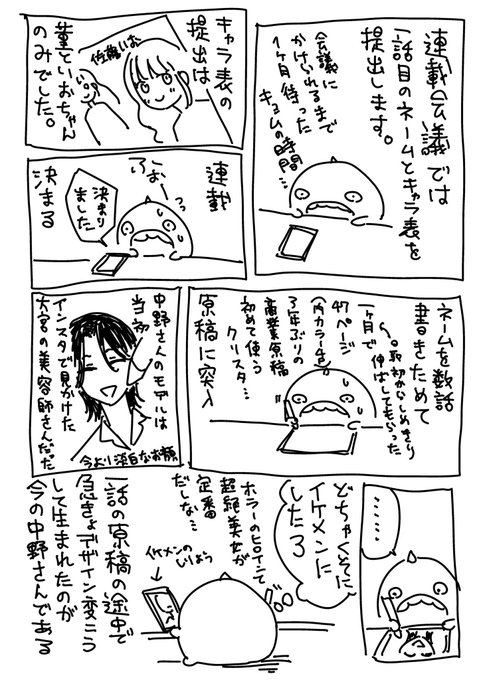 連載会議では
1話目のネームとキャラ表を
提出します。
会議に
かけられるまで
1ヶ月待った
キョムの時間…
キャラ表の
提出は
佐藤いお
菫といおちゃん
のみでした。
連載
決まる
ふぉーっっ
決まり
ました
ネームを数話
書きためて
1ヶ月で
47ページ
(内カラー4p)
3年ぶりの
商業原稿
初めて使う
クリスタ…
原稿に突入
中野さんのモデルは
当初
インスタで見かけた
大宮の美容師さんだった
今より淡白なお顔
……
どちゃくそに
イケメンに
したろ
ホラーのヒロインて
超絶美女が
定番
だしな…
イケメンの
しりょう
1話の原稿の途中で
急きょデザイン変こう
して生まれたのが
今の中野さんである